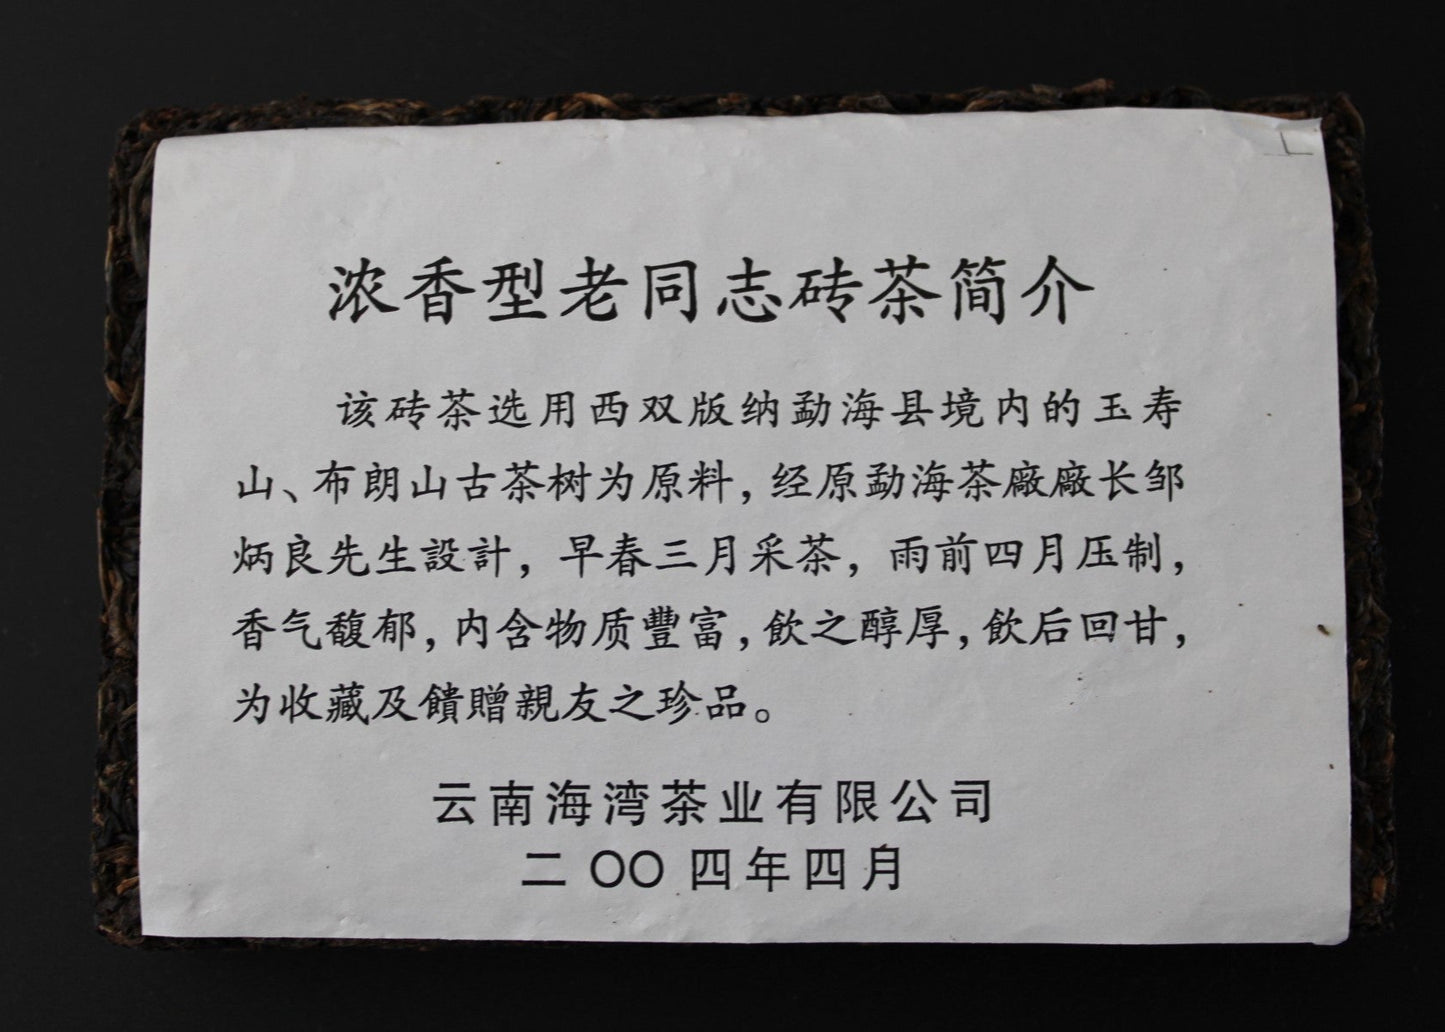 浓香型老同志砖茶简介
该砖茶选用西双版纳勐海县境内的玉寿
山、布朗山古茶树为原料，经原勐海茶廠廠长邹
炳良先生設計，早春三月采茶，雨前四月压制，
香气馥郁，内含物质豐富，飲之醇厚，飲后回甘，
为收藏及饋贈親友之珍品。
云南海湾茶业有限公司
二〇〇四年四月